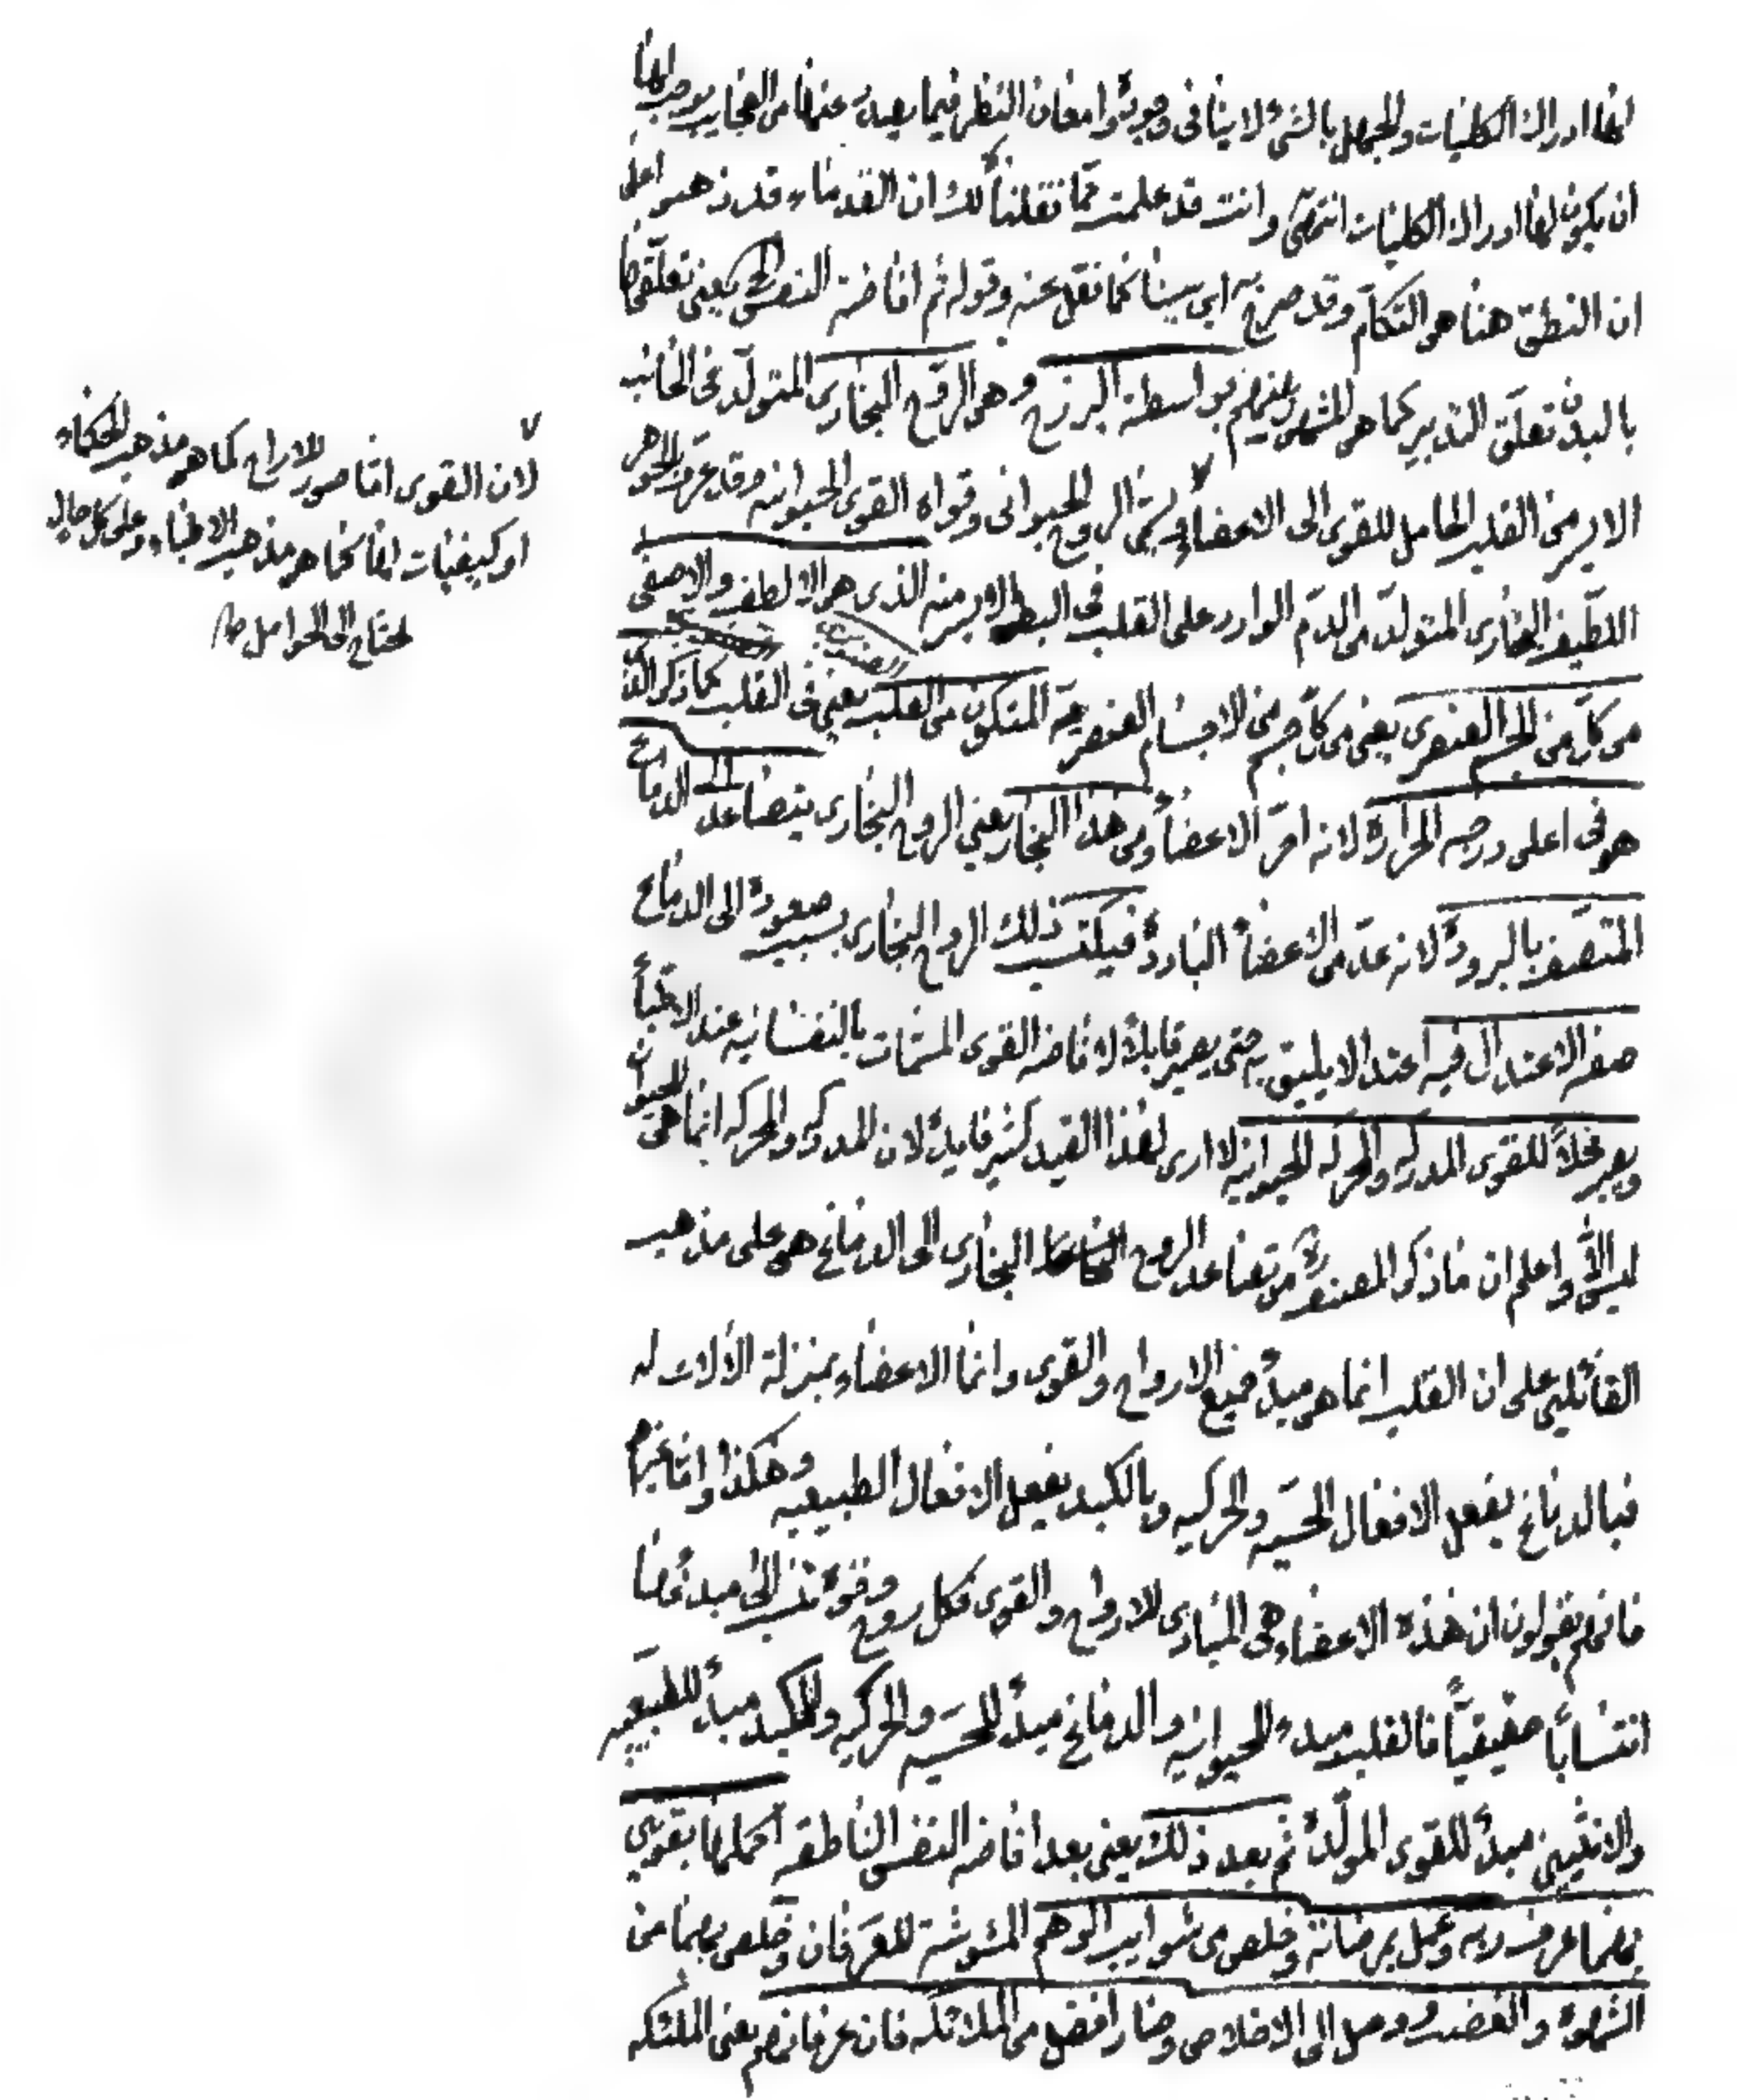 لها ادراك الكليات والجهل بالشئ لا ينافى وجوده وامعان النظر فيما يصدر عنها من العجايب يوجب لها
ان يكون لها ادراك الكليات انتهى وانت قد علمت مما نقلناه لك ان القدماء قد ذهبوا على
ان النطق هنا هو التكلم وقد صرح به ابن سينا كما نقل عنه وقوله ثم افاضة النفس الخ يعنى تعلقها
بالبدن تعلق التدبير كما هو المشهور بينهم بواسطة البرزخ وهو الروح البخارى المتولد عن الجانب
الايسر من القلب الحامل للقوى الى الاعضاء ويسمى الروح الحيوانى وقواه القوى الحيوانيه وقد عرف بالجوهر
اللطيف البخارى المتولد من الدم الوارد على القلب فى البطن الايسر منه الذى هو الالطف والاصفى
من كل من الجسم العنصرى يعنى من كل جسم من الاجسام العنصرية المتكون من القلب يعنى فى القلب كما ذكر الذى
هو فى اعلى درجه الحرارة لانه احر الاعضاء ومن هذا البخار يعنى الروح البخارى يتصاعد الى الدماغ
المتصف بالبرودة لانه عد من الاعضاء الباردة فيكتسب ذلك الروح البخارى بسبب صعوده الى الدماغ
صفه الاعتدال فيه اعتدالا يليق به حتى يصير قابلا لافاضه القوى المسمات بالنفسانيه عند الاطباء
ويصير محلا للقوى المدركه والمحركه الحيوانيه لا ارى لهذا القيد كثير فايده لان المدركه والمحركه انما هى للحيوان
ليس الا واعلم ان ما ذكره المصنف من تصاعد الروح البخارى الى الدماغ هو على مذهب
القائلين على ان القلب انما هو مبدء جميع الارواح والقوى وانما الاعضاء بمنزلة الآلات له
فبالدماغ يفعل الافعال الحسيه والحركيه وبالكبد يفعل الافعال الطبيعيه وهكذا واما غيرهم
فانهم يقولون ان هذه الاعضاء هى المبادى للارواح والقوى فكل روح وقوة تنسب الى مبدئها
انتسابا حقيقيا فالقلب مبدء للحيوانيه والدماغ مبدء للحسيه والحركيه والكبد مبدء للطبيعيه
والانثيين مبدء للقوى المولده ثم بعد ذلك يعنى بعد افاضه النفس الناطقه اكملها بقوتين
بهما عرف ربه وعمل برضائه وخلص من شوايب الوهم المشوشة للعرفان وخلص بهما من
الشهوة والغضب ووصل الى الاخلاص وصار افضل من الملائكه فان عرفانهم يعنى الملئكه
لان القوى اما صور للارواح كما هو مذهب الحكماء
او كيفيات لها كما هو مذهب الاطباء وعلى كل حال
تحتاج الى الحوامل